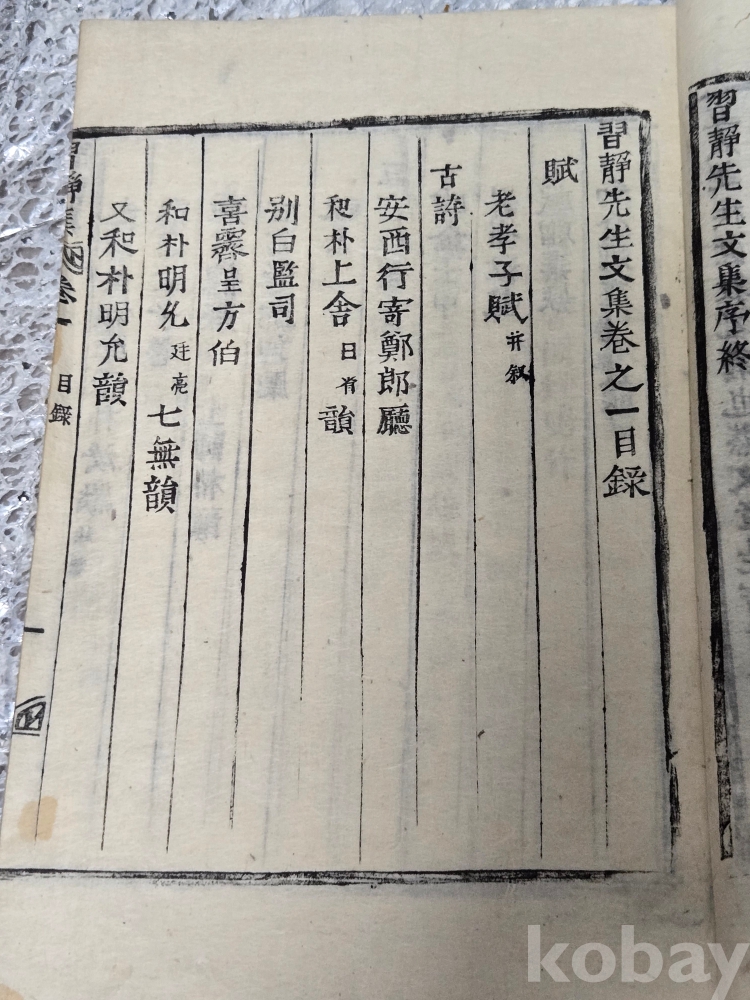 習靜先生文集序終
習靜先生文集卷之一目録
賦
老孝子賦 并叙
古詩
安西行寄鄭郎廳
和朴上舍 日省 韻
别白監司
喜霽呈方伯
和朴明允 廷亮 七無韻
又和朴明允韻
習靜集 卷一 目録 一
kobay